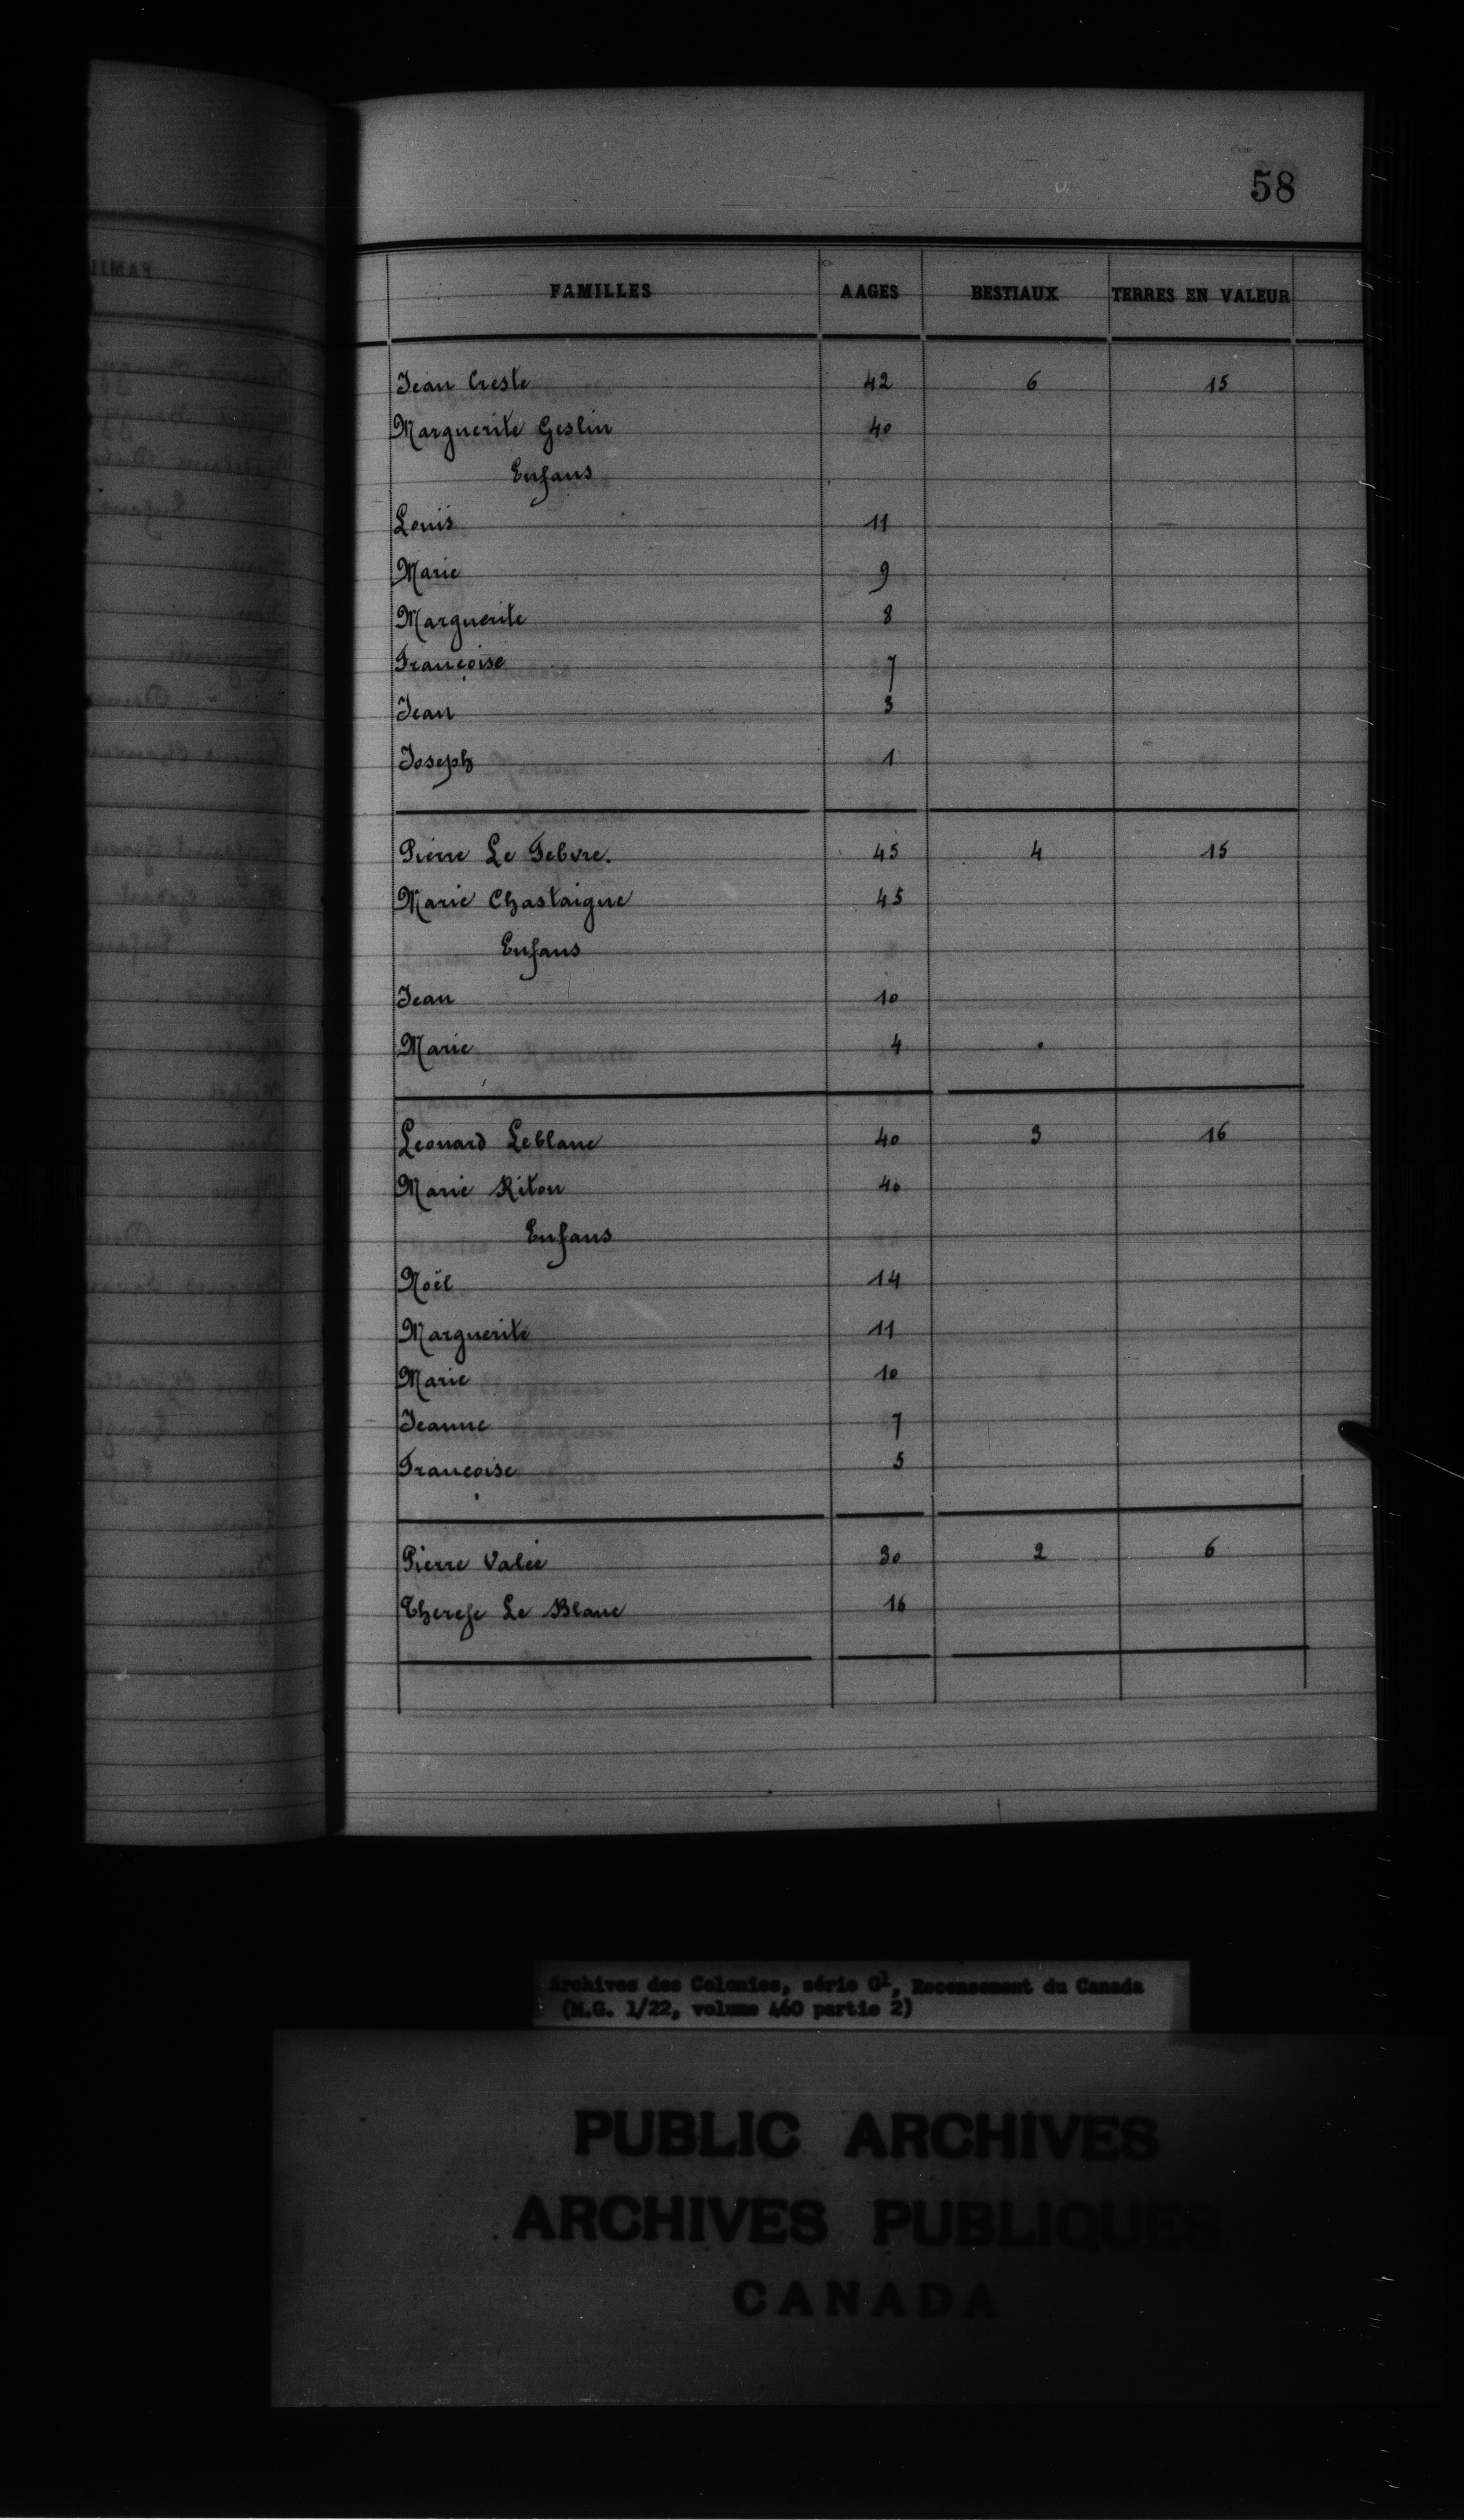 58
FAMILLES AAGES BESTIAUX TERRES EN VALEUR
Jean Creste 42 6 15
Marguerite Geslin 40
Enfans
Louis 11
Marie 9
Marguerite 8
Françoise 7
Jean 3
Joseph 1
Pierre Le Febvre. 45 4 15
Marie Chastaigne 45
Enfans
Jean 10
Marie 4
Leonard Leblanc 40 3 16
Marie Riton 40
Enfans
Noël 14
Marguerite 11
Marie 10
Jeanne 7
Françoise 5
Pierre Valee 30 2 6
Therese Le Blanc 16
Archives des Colonies, série G1, Recensement du Canada
(M.G. 1/22, volume 460 partie 2)
PUBLIC ARCHIVES
ARCHIVES PUBLIQUES
CANADA